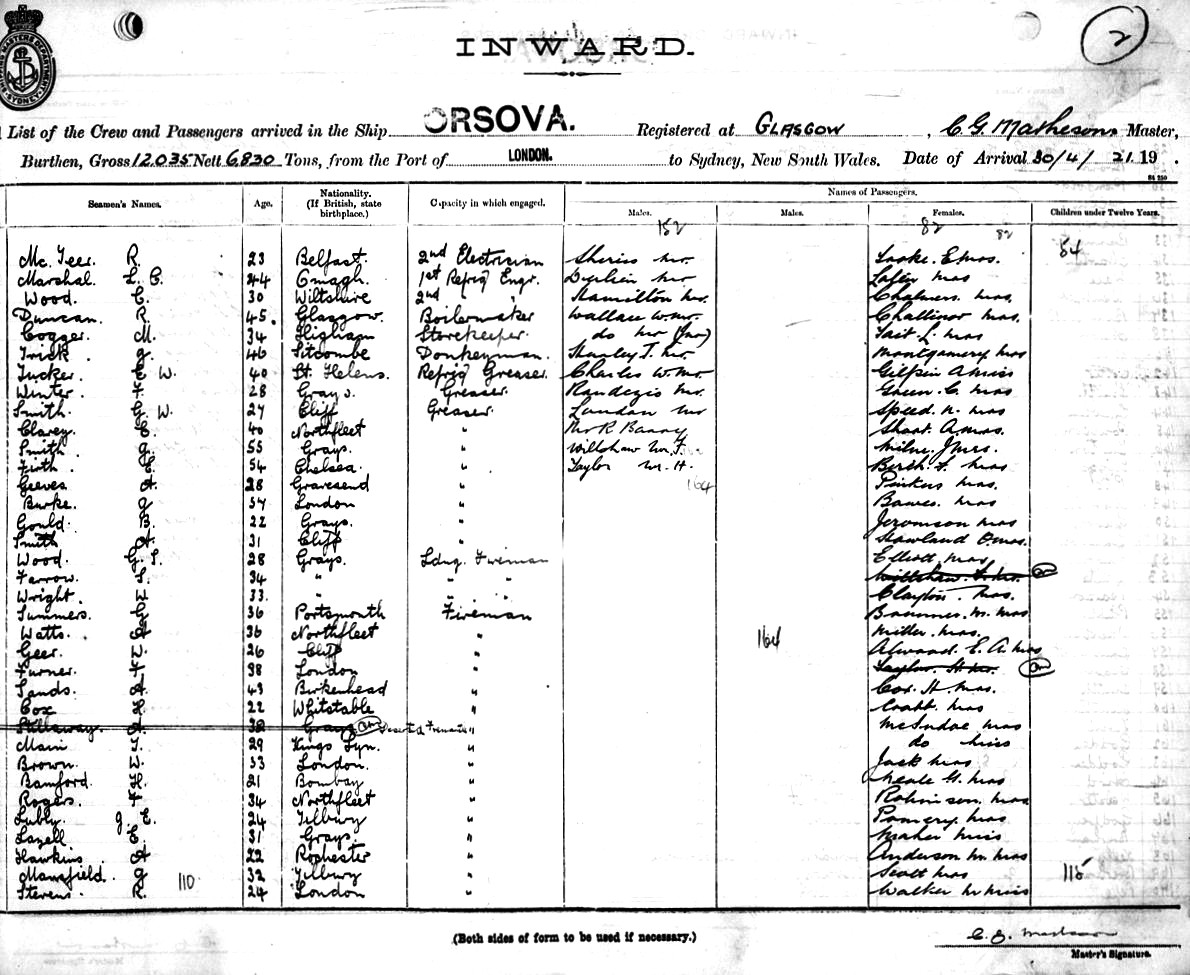 2
INWARD.
List of the Crew and Passengers arrived in the Ship ORSOVA. Registered at GLASGOW, C. G. Matheson Master,
Burthen, Gross 12.035 Nett 6,830 Tons, from the Port of LONDON. to Sydney, New South Wales. Date of Arrival 30/4/21 19 .
Seamen's Names. Age. Nationality. (If British, state birthplace.) Capacity in which engaged. Names of Passengers.
Males. Males. Females. Children under Twelve Years.
152 82 82
Mc. Teer. R. 23 Belfast. 2nd Electrician Mr. E Mrs. 54
Marshal. L. C. 44 Omagh. 1st Refrig Engr. Mr. Mrs
Wood. C. 30 Wiltshire 2nd " Hamilton Mr. Chalmers Mrs.
Duncan. R. 45. Glasgow. Boilermaker Wallace W. Mr. Challinor Mrs.
Cogger. M. 34 Higham Storekeeper do Mr (Jnr) Tait L. Mrs
Trick G. 46 Donkeyman. Stanley T. Mr Montgomery Mrs
Tucker. E W. 40 St Helens. Refrig Greaser. Charles W. Mr Gilpin A Miss
Winter. F 28 Grays. Greaser. Mr. Green. C. Mrs
Smith. G. W. 27 Cliff Greaser. London Mr Speed. N. Mrs
Clarey. E. 40 Northfleet " Mr R Barry Short. A Mrs.
Smith G. 55 Grays. " Willshaw Mr. F. Milne. J Mrs.
Firth. E. 54 Chelsea. " Taylor Mr. H. Birch. F. Mrs
Geeves A. 28 Gravesend " 164 Mrs.
Burke. G 57 London " Mrs
Gould. B. 22 Grays. " Mrs
Smith A. 31 Cliff " Howland E Mrs.
Wood. G. S. 28 Grays. Ldng. Fireman Elliott Mrs
Farrow. S. 34 " " " Willshaw. F. Mr.
Wright. W 33. " " " Clayton. Mrs.
Summers. G 36 Portsmouth Fireman M. Mrs
Watts. A 36 Northfleet " 164 Miller. Mrs.
Geer. W. 26 Cliff " Atwood. E. A. Mrs
Turner. F 38 London " Taylor. H. Mr.
Sands. A. 43 Birkenhead " Cox. H Mrs.
Cox H. 22 Whitstable " Mrs
Stillaway. A. 32 Grays Deserted Fremantle " McIndoe Mrs
Main T. 29 Kings Lyn. " do Miss
Brown. W. 33 London. " Jack Mrs
Bamford. H. 21 Bombay " Neale G. Mrs
Rogers. F 34 Northfleet " Robinson. Mrs
Lubly. G. E. 24 Tilbury " Pomery. Mrs
Lazell E. 31 Grays. " Maher Miss
Hawkins A 22 Rochester " Anderson M. Mrs
Mansfield. G 110 32 Tilbury " Scott Mrs 115
Stevens. R. 24 London " Walker M Miss
(Both sides of form to be used if necessary.)
C. G. Matheson
Master's Signature.